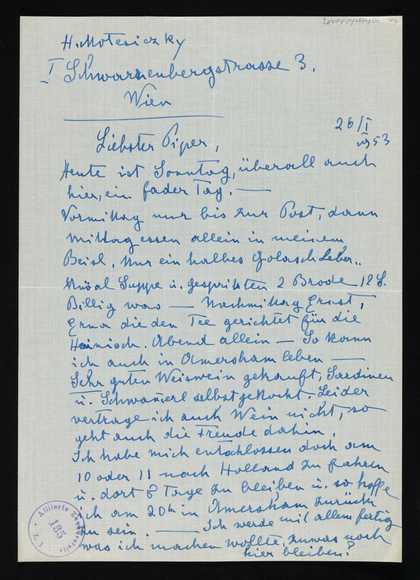 H. Motesiczky
I Schwarzenbergstrasse 3.
Wien
26/I
1953
Liebster Piper,
Heute ist Sonntag, überall auch
hier, ein fader Tag. —
Vormittag nur bis zur Post, dann
Mittag essen allein in meinem
Beisl. Nur ein halbes Golasch Leber..
Suppe u. gespritzten 2 Brode 18 S.
Billig was — Nachmittag Ernst,
Erna die den Tee gerichtet für die
Hainisch. Abend allein — So kann
ich auch in Amersham leben —
Sehr guten Weiswein gekauft, Sardinen
u. Schwamerl selbst gekocht. Leider
vertrage ich auch Wein nicht, so
geht auch die Freude dahin.
Ich habe mich entschlossen doch am
10 oder 11 nach Holland zu fahren
u. dort 8 Tage zu bleiben u. so hoffe
ich am 20ten in Amersham zurück
zu sein. — Ich werde mit allem fertig
was ich machen wollte, zuwas noch
hier bleiben?
Alliierte Zensurstelle
185